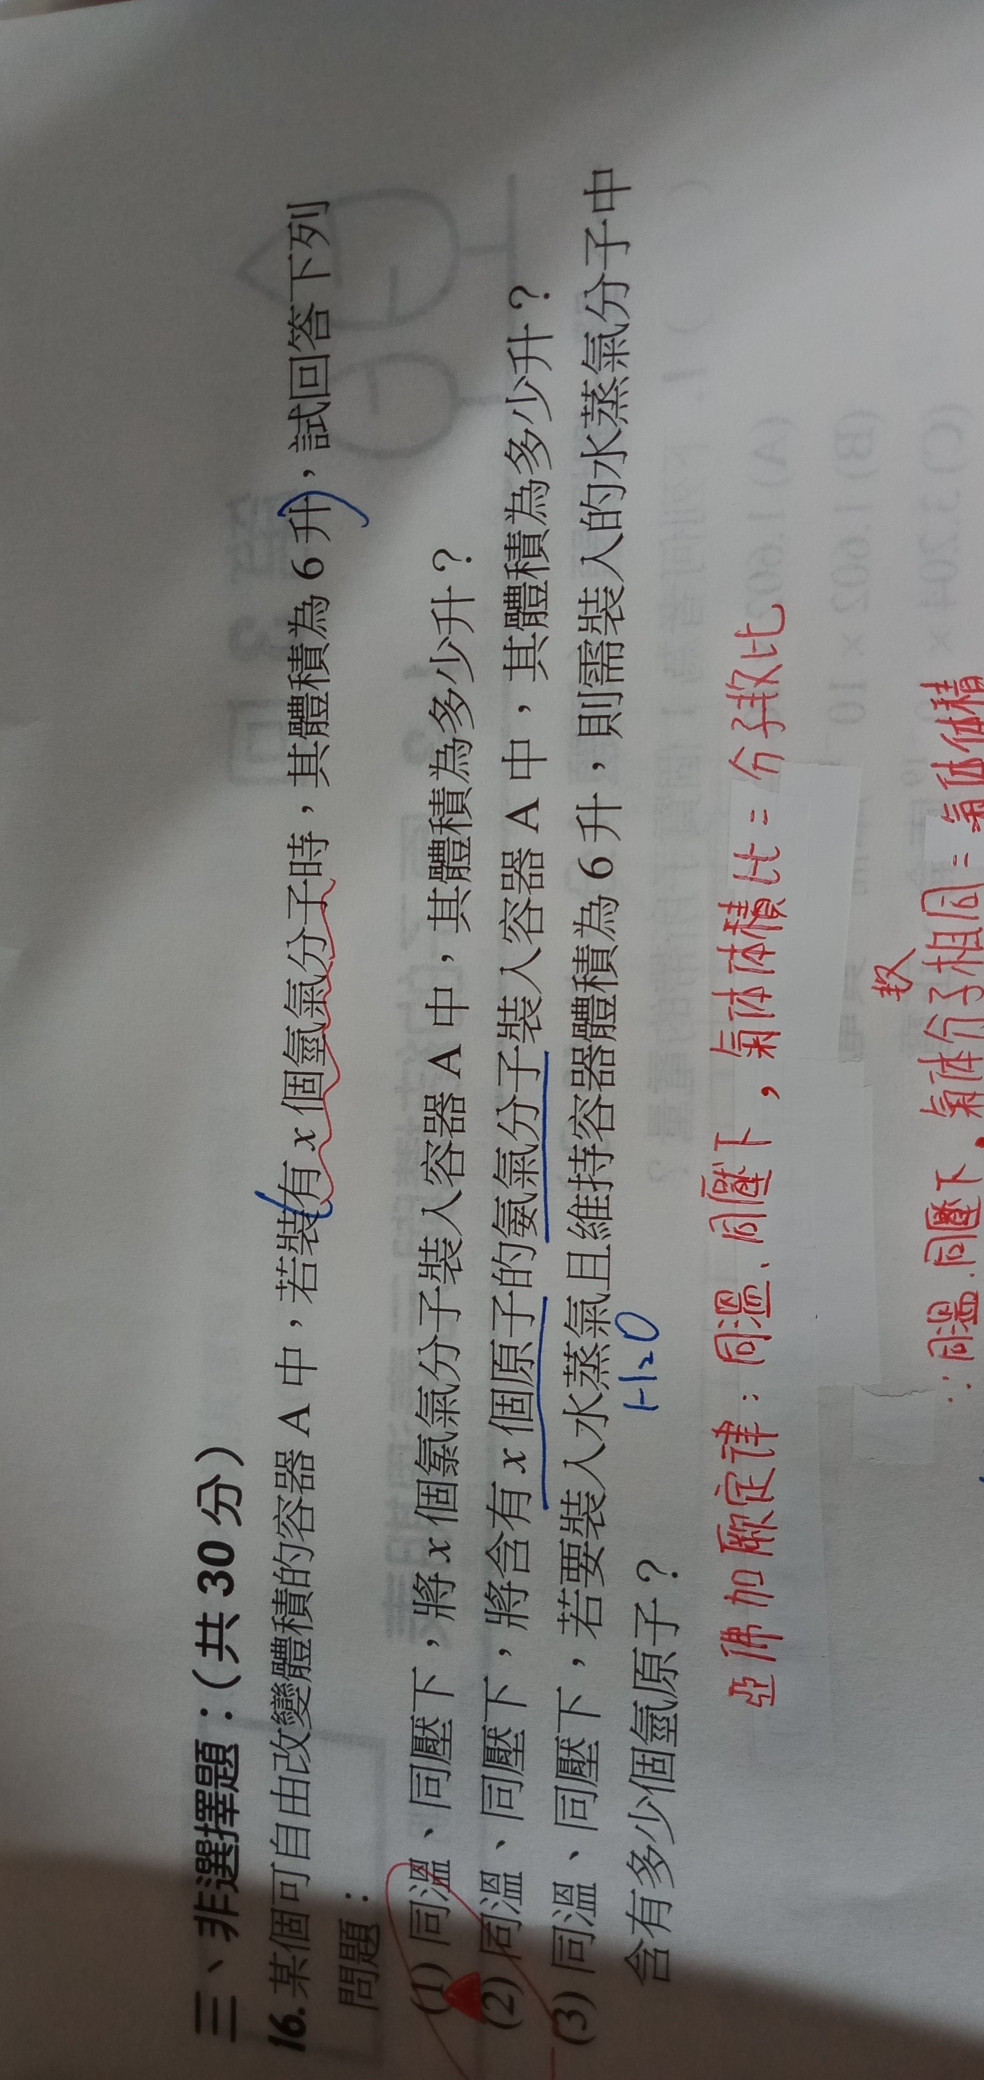 三、非選擇題：(共 30 分)
16. 某個可自由改變體積的容器 A 中，若裝有 x 個氫氣分子時，其體積為 6 升，試回答下列
問題：
(1) 同溫、同壓下，將 x 個氯氣分子裝入容器 A 中，其體積為多少升？
(2) 同溫、同壓下，將含有 x 個原子的氨氣分子裝入容器 A 中，其體積為多少升？
(3) 同溫、同壓下，若要裝入水蒸氣且維持容器體積為 6 升，則需裝入的水蒸氣分子中
H₂O
含有多少個氫原子？
亞佛加厥定律：同溫、同壓下，氣体体積比=分子数比
数
∴同溫.同壓下，氣体分子相同=氣体体積